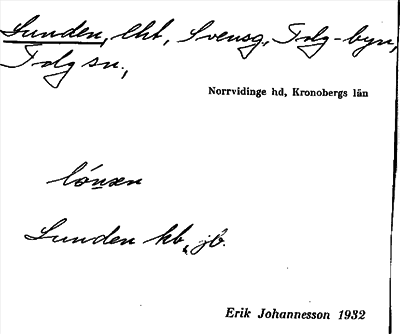 Lunden, lht, Svensg. Tolg-byn,
Tolg sn.,
Norrvidinge hd, Kronobergs län
Lunden kb, jb.
Erik Johannesson 1932